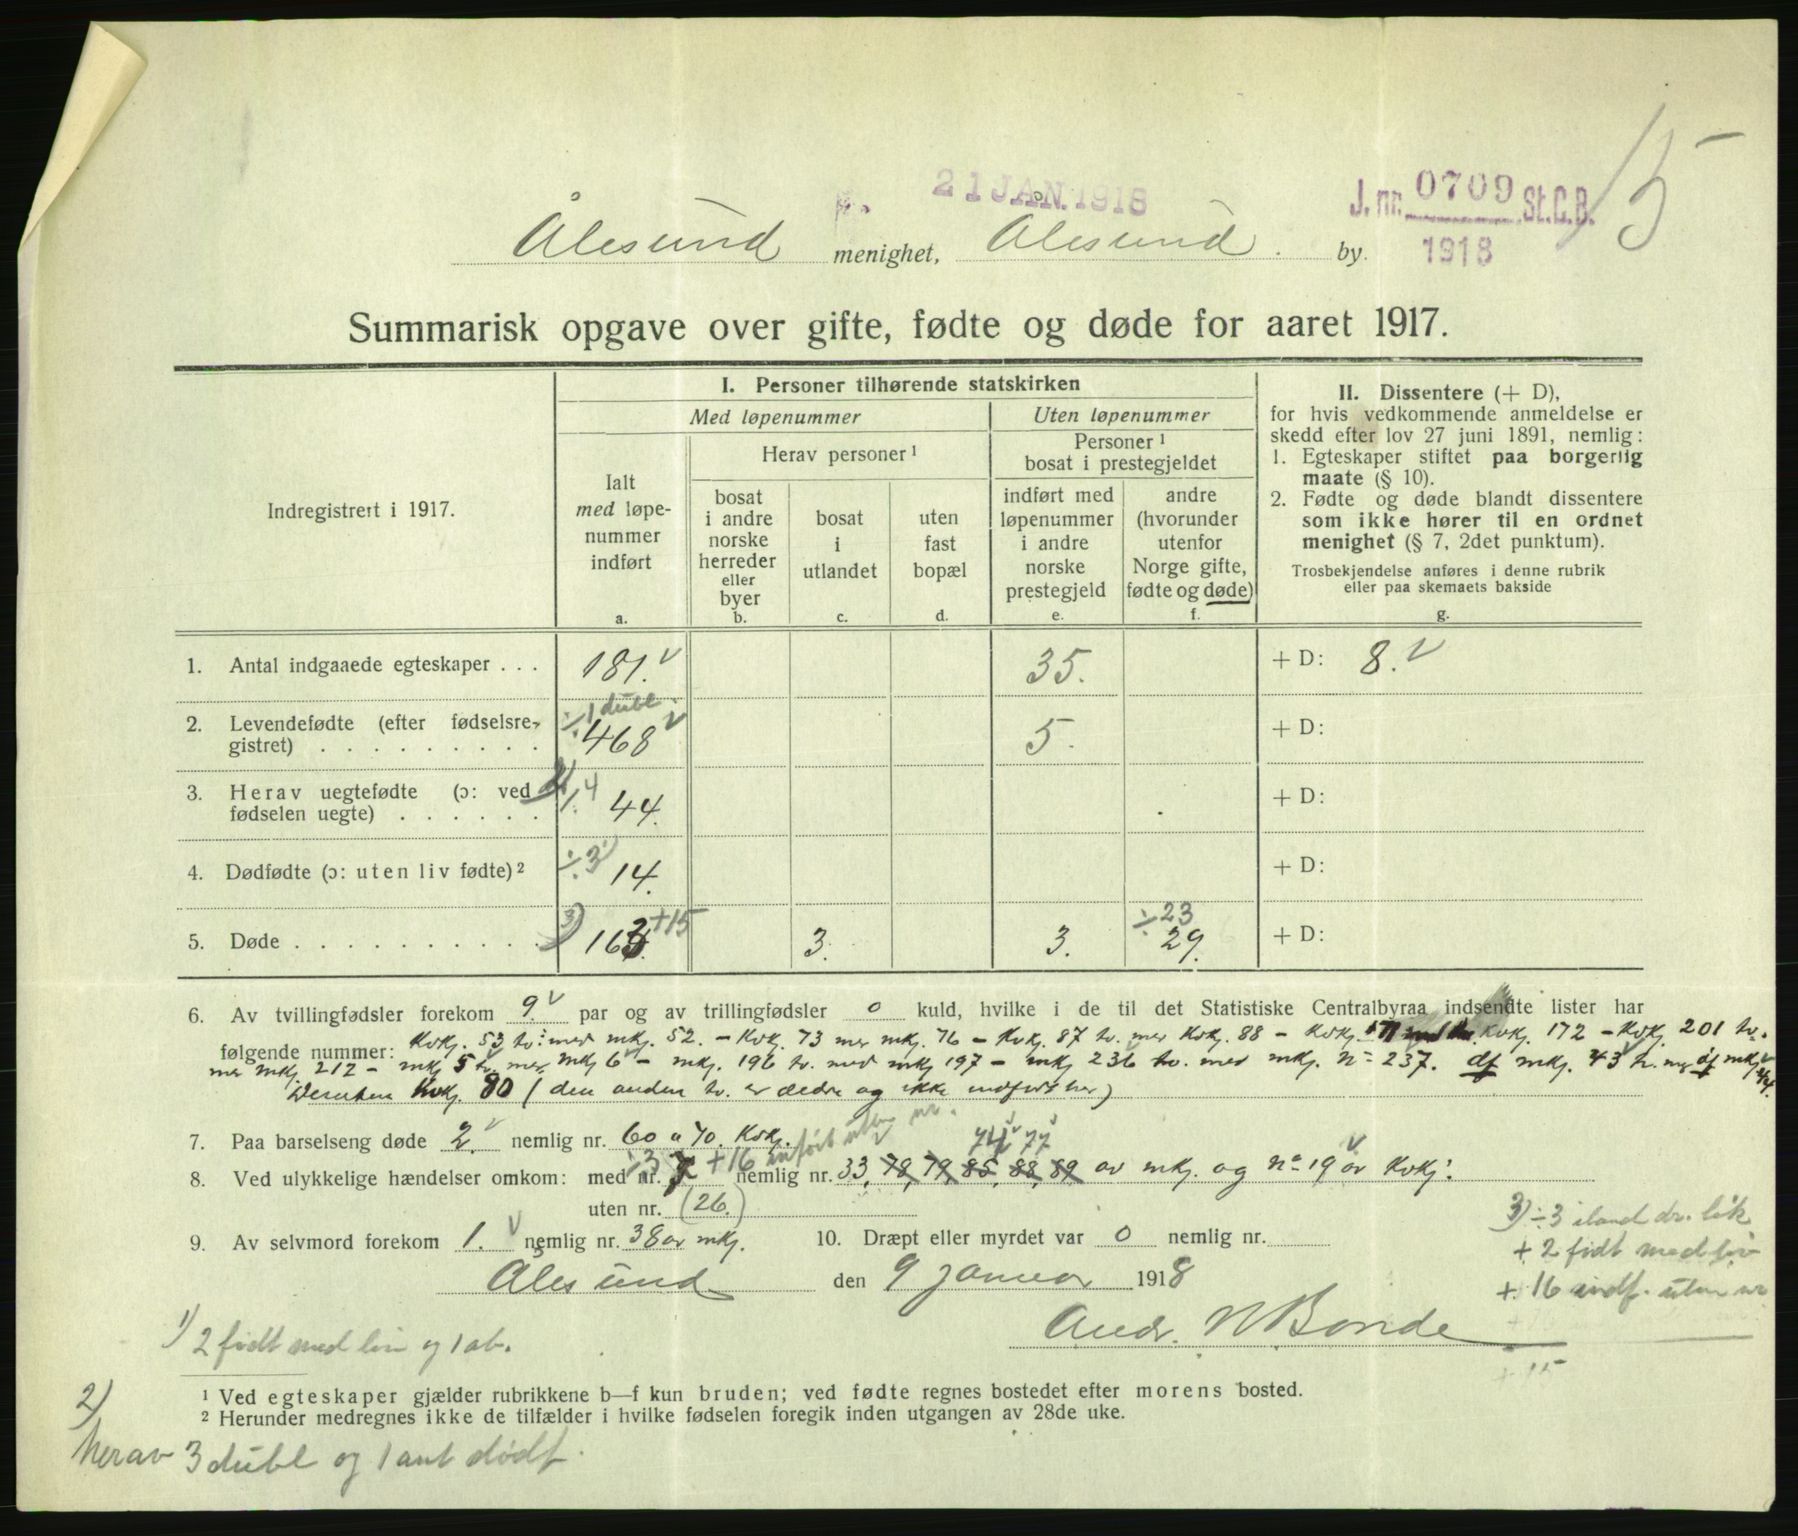 21 JAN. 1918
J. nr. 0709 St.C.B.
1918
15
Ålesund menighet, Ålesund. by.
Summarisk opgave over gifte, fødte og døde for aaret 1917.
Indregistrert i 1917.
I. Personer tilhørende statskirken
Med løpenummer
Uten løpenummer
Ialt
med løpe-
nummer
indført
a.
Herav personer 1
bosat
i andre
norske
herreder
eller
byer
b.
bosat
i
utlandet
c.
uten
fast
bopæl
d.
Personer 1
bosat i prestegjeldet
indført med
løpenummer
i andre
norske
prestegjeld
e.
andre
(hvorunder
utenfor
Norge gifte,
fødte og døde)
f.
II. Dissentere (+ D),
for hvis vedkommende anmeldelse er
skedd efter lov 27 juni 1891, nemlig:
1. Egteskaper stiftet paa borgerlig
maate (§ 10).
2. Fødte og døde blandt dissentere
som ikke hører til en ordnet
menighet (§ 7, 2det punktum).
Trosbekjendelse anføres i denne rubrik
eller paa skemaets bakside
g.
1. Antal indgaaede egteskaper . . . 181. 35. + D: 8.
÷ 1 dubl.
2. Levendefødte (efter fødselsre-
gistret) . . . . . . . . . 468 5. + D:
3. Herav uegtefødte (ɔ: ved
fødselen uegte) . . . . . . 2) ÷ 4 44. + D:
4. Dødfødte (ɔ: uten liv fødte) 2 ÷ 3 1) 14. + D:
5. Døde . . . . . . . . . . 3) 163. +15 3. 3. ÷ 23 29. + D:
6. Av tvillingfødsler forekom 9 par og av trillingfødsler 0 kuld, hvilke i de til det Statistiske Centralbyraa indsendte lister har
følgende nummer: Kvkj. 53 tv: med mkj. 52. – Kvkj. 73 med mkj. 76 – Kvkj. 87 tv. med Kvkj. 88 – Kvkj. 171 med Kvkj. 172 – Kvkj. 201 tv.
med mkj. 212 – mkj 5 tv. med mkj 6 – mkj. 196 tv. med mkj 197 – mkj 236 tv. med mkj. n= 237. df mkj. 43 tv. med df mkj.
Desuten Kvkj. 80 (den anden tv. er dødfø og ikke indført her)
7. Paa barselseng døde 2. nemlig nr. 60 o 70. Kvkj.
÷3 +16 indført uten nr. 74 77
8. Ved ulykkelige hændelser omkom: med nr. 7 nemlig nr. 33, 78, 79, 85, 88, 89 av mkj. og n= 19 av Kvkj:
uten nr. (26.)
9. Av selvmord forekom 1. nemlig nr. 38 av mkj. 10. Dræpt eller myrdet var 0 nemlig nr.
Ålesund den 9 januar 1918
Andr. N Bonde
3) ÷3 iland dr. lik
+ 2 født med liv
+ 16 indf. uten nr
+ 15
1) 2 født med liv og 1 ab.
1 Ved egteskaper gjælder rubrikkene b—f kun bruden; ved fødte regnes bostedet efter morens bosted.
2 Herunder medregnes ikke de tilfælder i hvilke fødselen foregik inden utgangen av 28de uke.
2)
herav 3 dubl og 1 ant dødf.